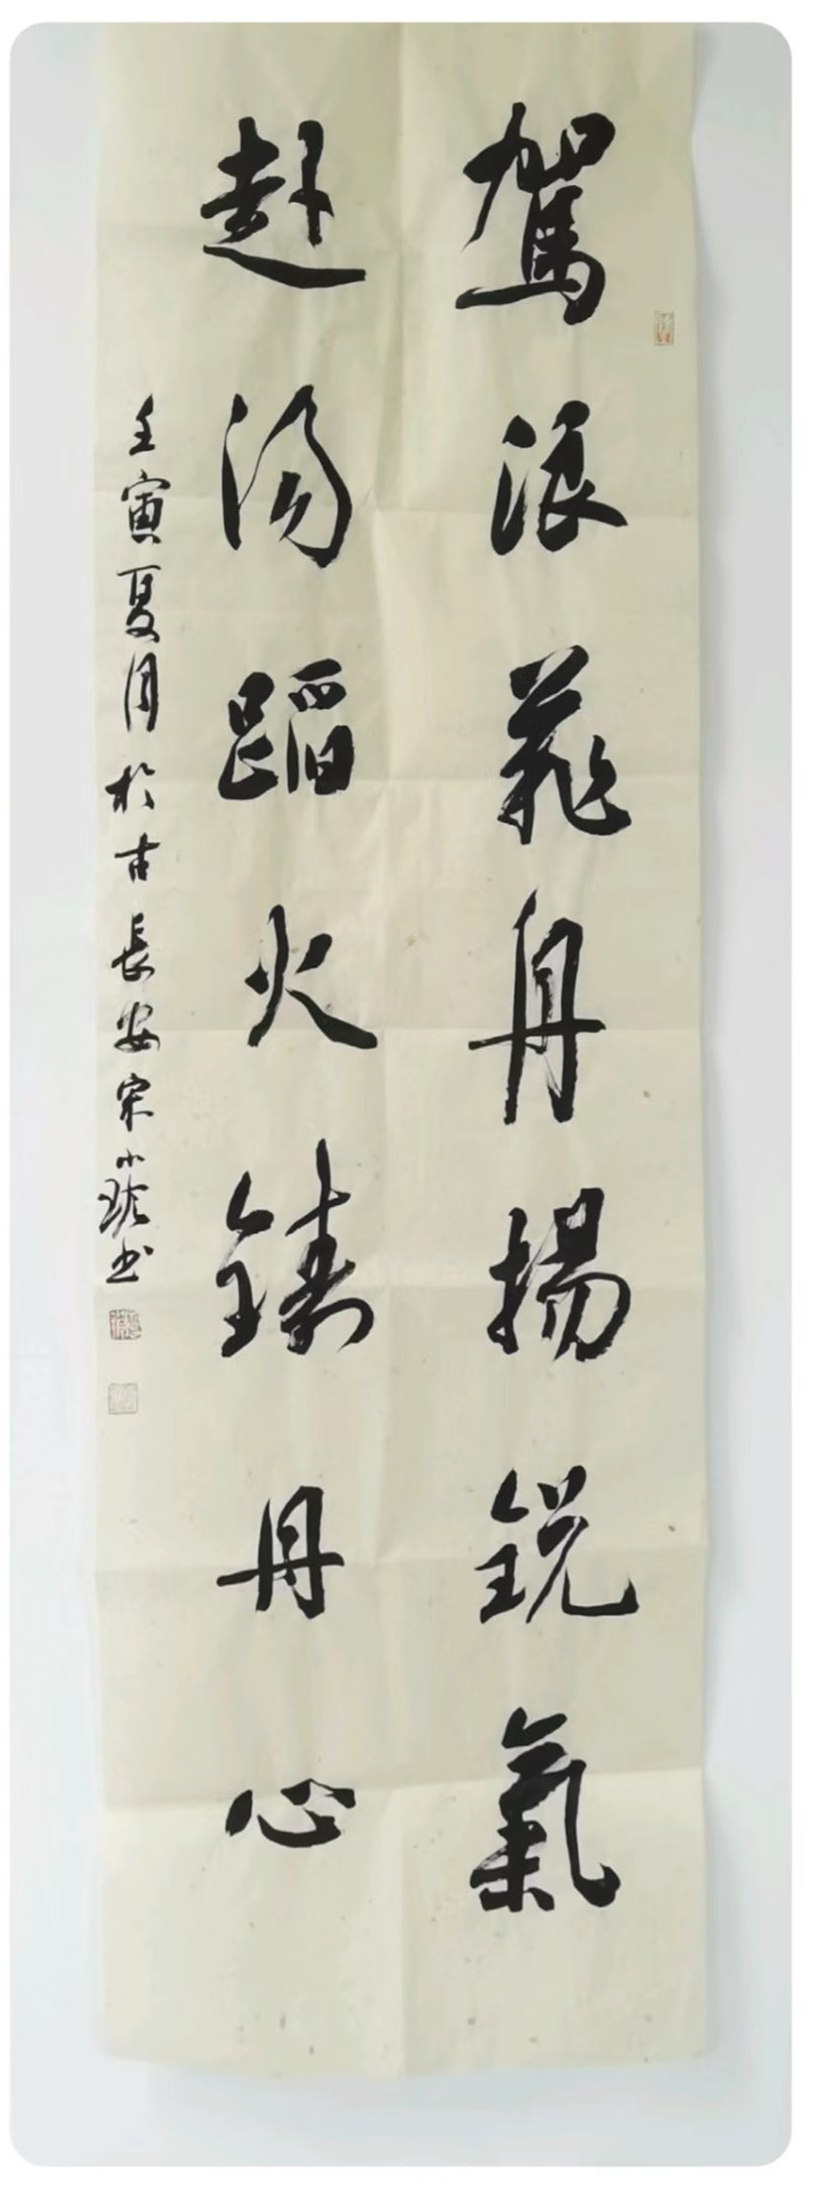 駕浪飛舟揚銳氣
赴湯蹈火鑄丹心
壬寅夏月於古長安宋小琰書